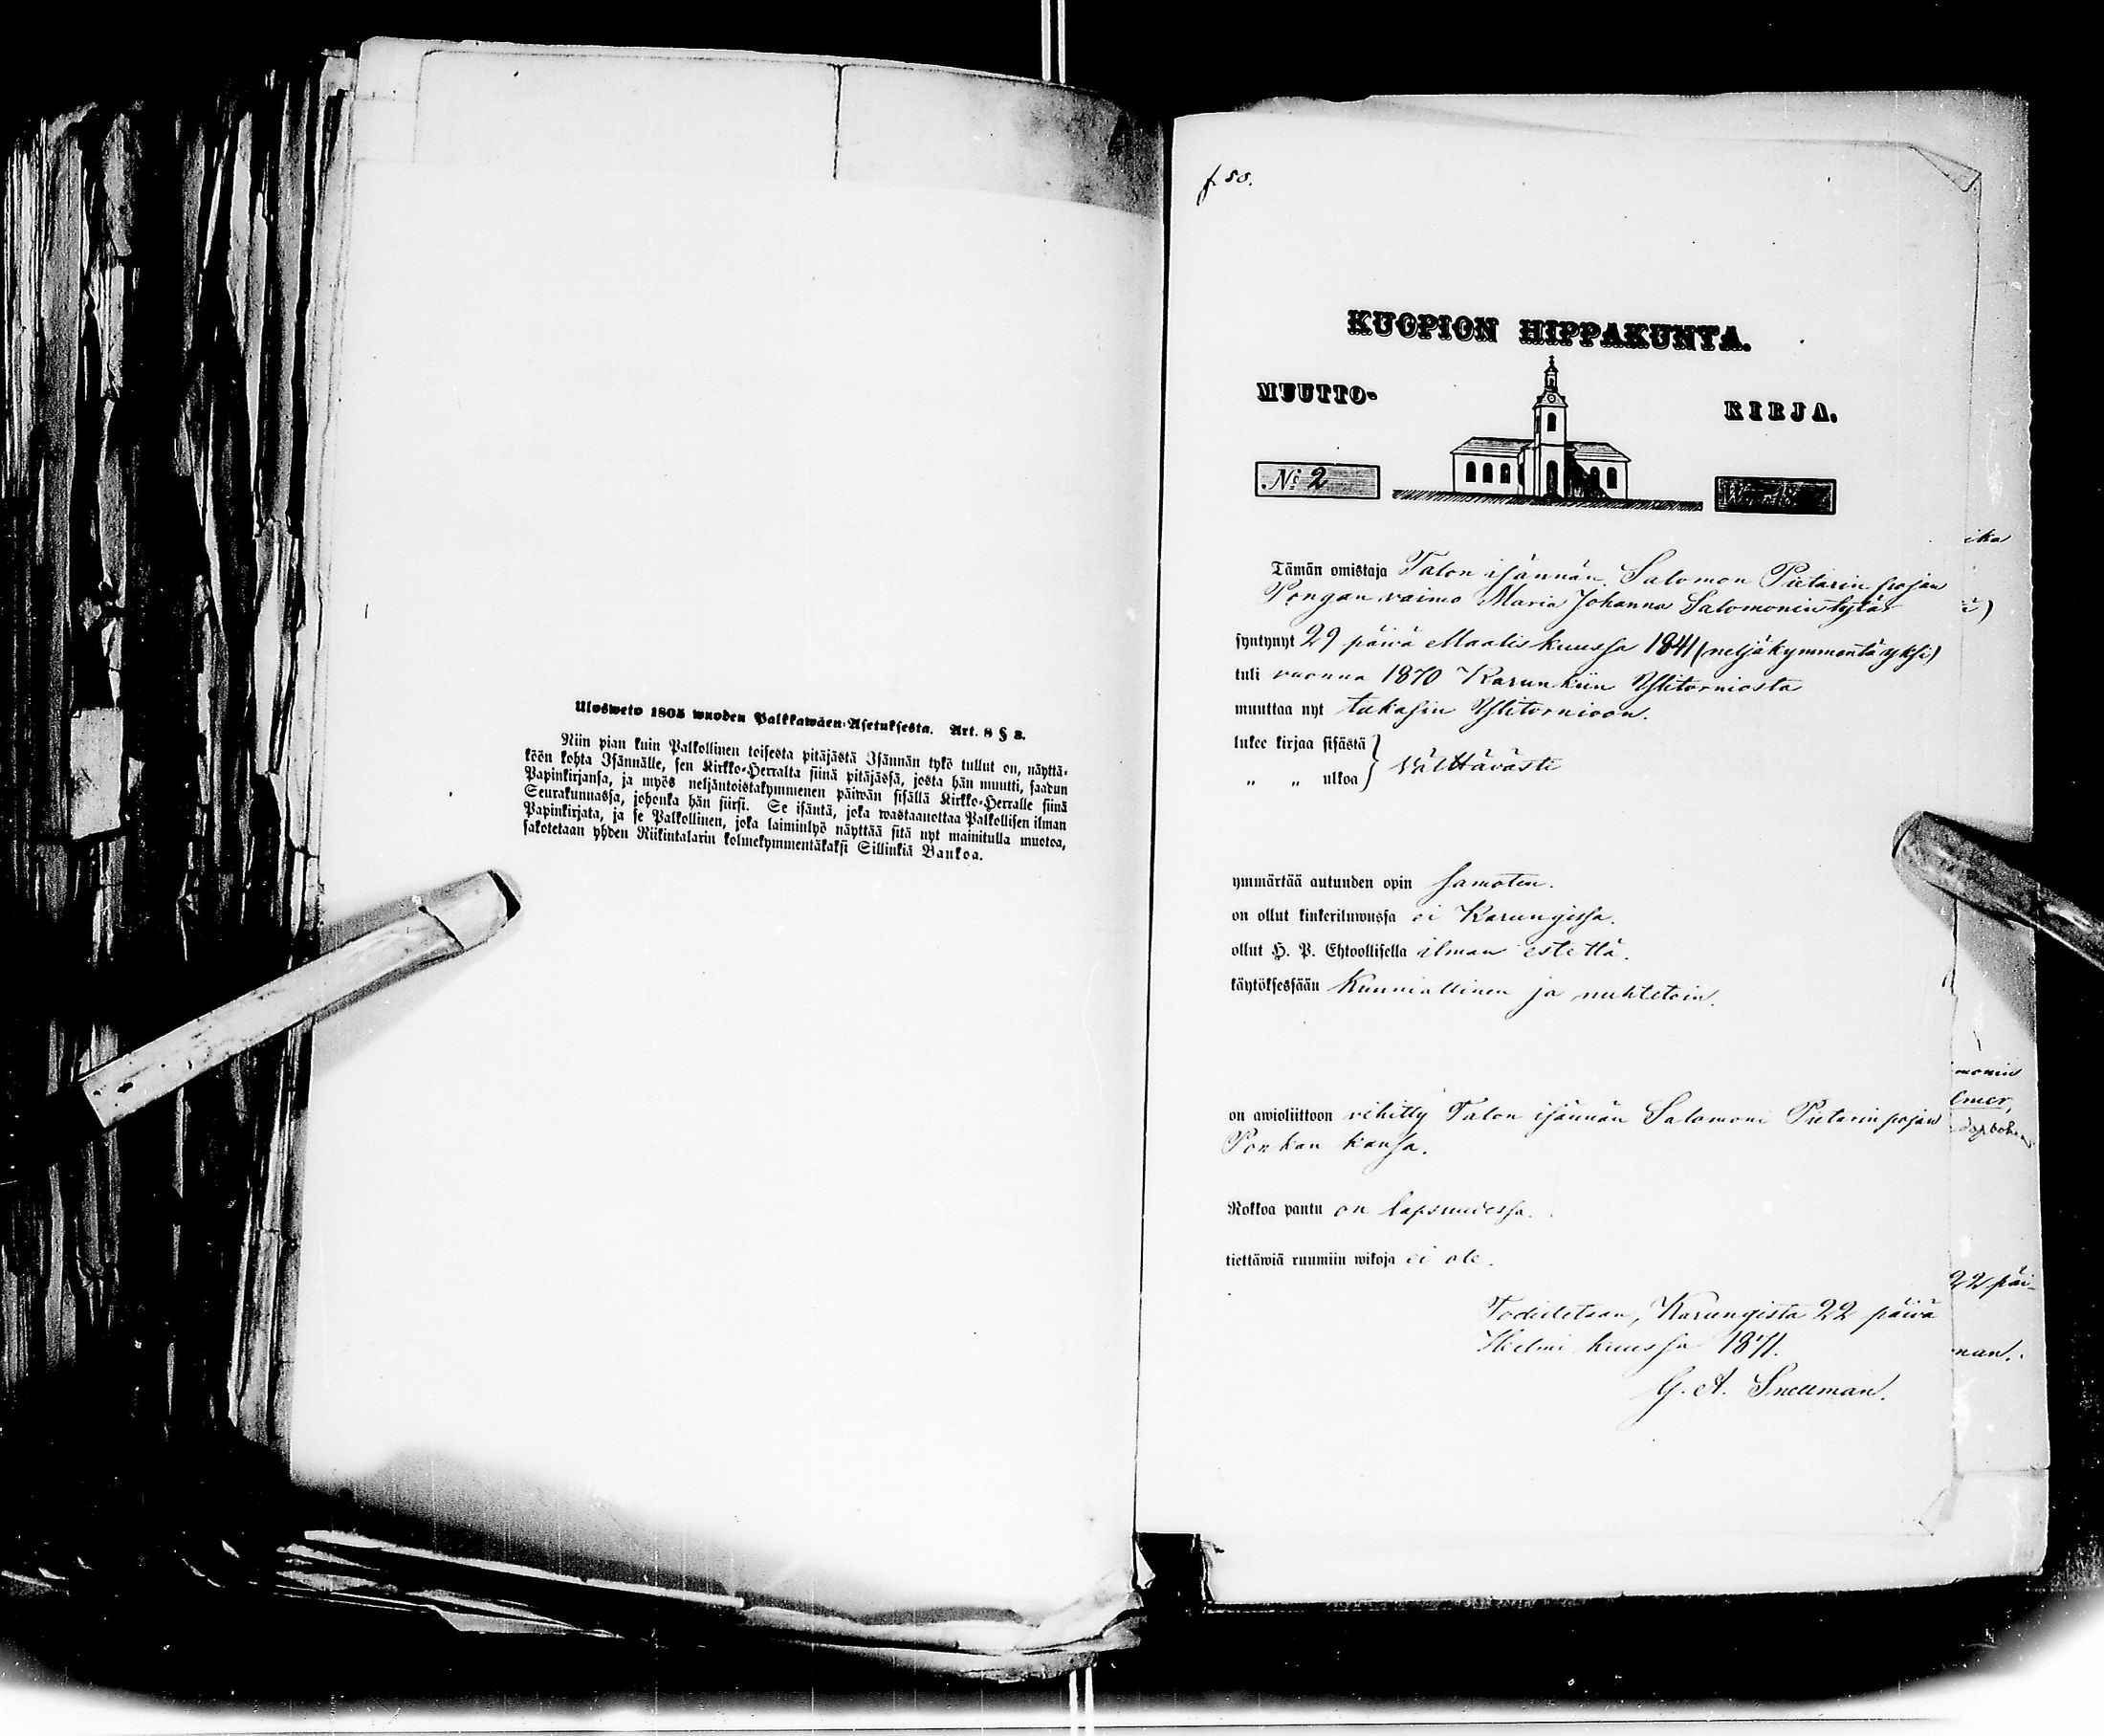 Ulosweto 1805 wuoden Palkkawäen-Asetuksesta. Art. 8 § 3.
Niin pian kuin Palkollinen toisesta pitäjästä Isännän tykö tullut on, näyttä-
köön kohta Isännälle, sen Kirkko-Herralta siinä pitäjässä, josta hän muutti, saadun
Papinkirjansa, ja myös neljäntoistakymmenen päiwän sisällä Kirkko-Herralle siinä
Seurakunnassa, johonka hän siirsi. Se isäntä, joka wastaanottaa Palkollisen ilman
Papinkirjata, ja se Palkollinen, joka laiminlyö näyttää sitä nyt mainitulla muotoa,
sakotetaan yhden Riikintalarin kolmekymmentäkaksi Sillinkiä Bankoa.
f. 50.
KUOPION HIPPAKUNTA.
MUUTTO- KIRJA.
No: 2
Tämän omistaja Talon isännän Salomon Pietarin pojan
Pongan vaimo Maria Johanna Salomonin tytär
syntynyt 29 päivä Maalis kuussa 1841 (neljäkymmentä yksi)
tuli vuonna 1870 Karunkiin Ylitorniosta
muuttaa nyt takasin Ylitornioon.
lukee kirjaa sisästä
„ „ ulkoa } Välttävästi
ymmärtää autunden opin samoten.
on ollut kinkeriluwussa ei Karungissa.
ollut H. P. Ehtoollisella ilman estettä.
käytöksessään Kunniallinen ja nuhtetoin.
on awioliittoon vihitty Talon isännän Salomoni Pietarin pojan
Ponkan kanssa.
Rokkoa pantu on lapsuudessa.
tiettäwiä ruumiin wikoja ei ole.
Todistetaan, Karungista 22 päivä
Helmi kuussa 1871.
G. A. Snellman.
22 päi-